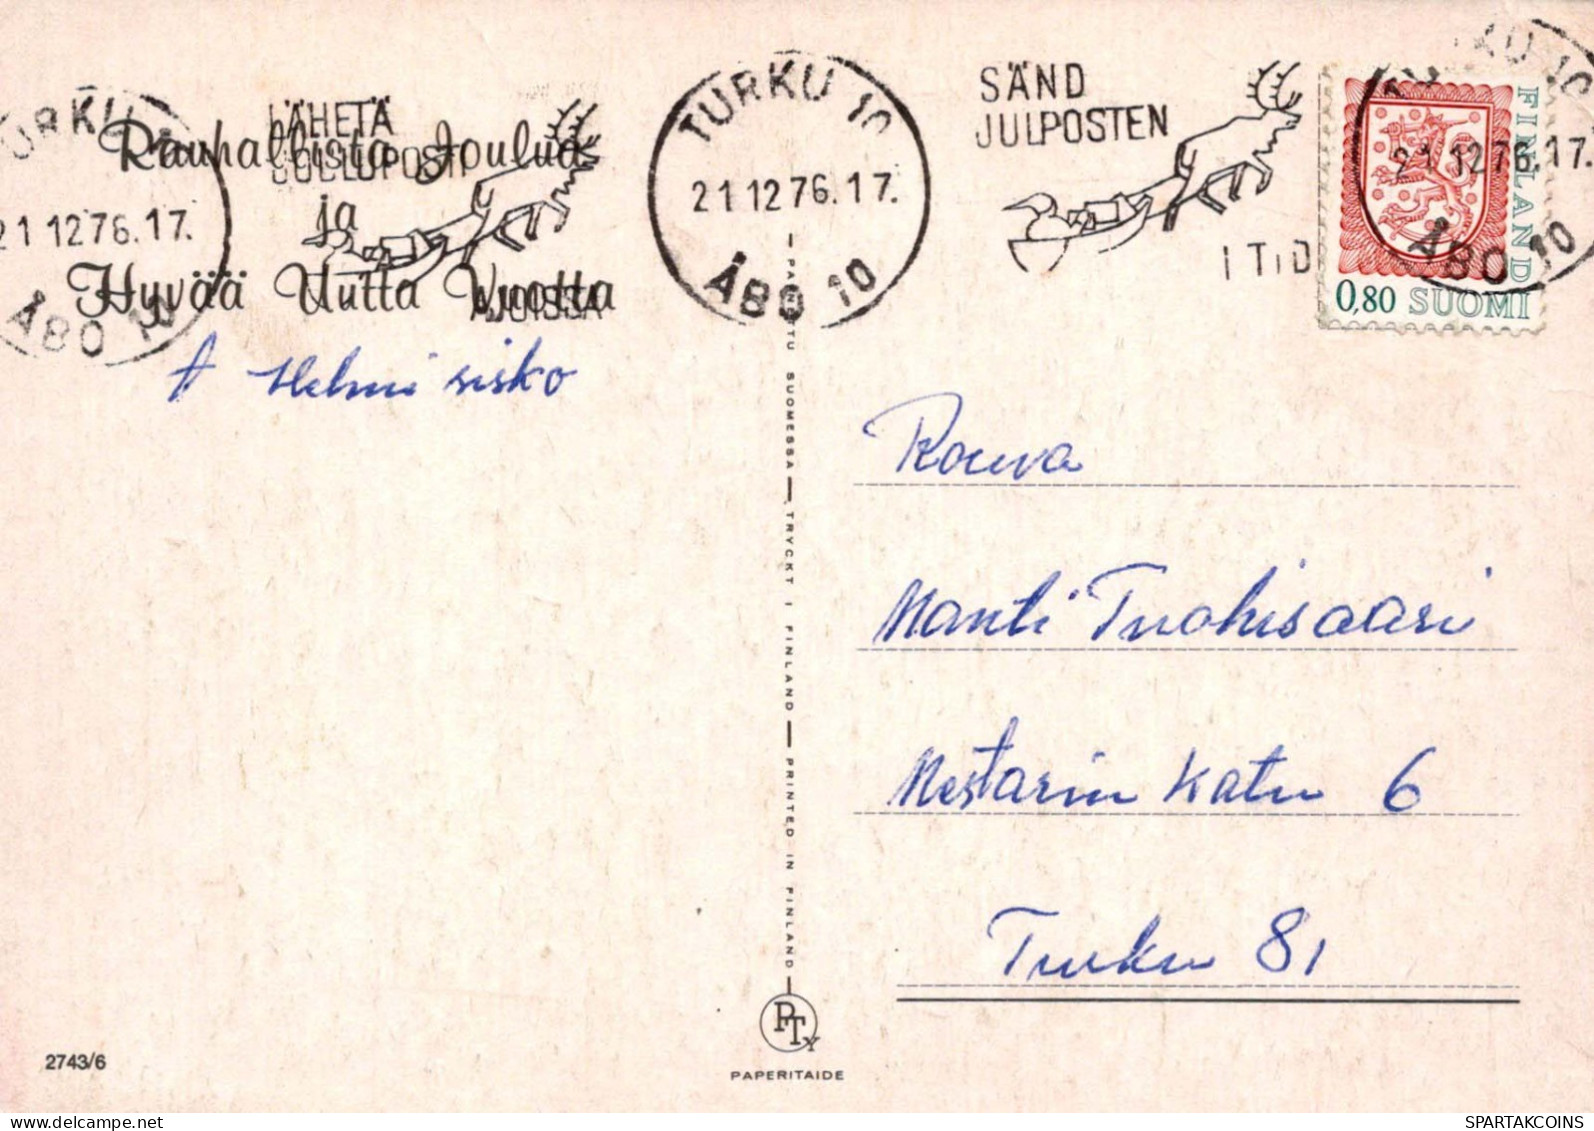 TURKU 10
21 12 76.17.
ÅBO 10
LÄHETÄ
JOULUPOSTI
AJOISSA
Rauhallista Joulua
ja
Hyvää Uutta Vuotta
Helmi sisko
TURKU 10
21 12 76.17.
ÅBO 10
SÄND
JULPOSTEN
I TID
TURKU 10
21 12 76.17.
ÅBO 10
FINLAND
0,80 SUOMI
PAINETTU SUOMESSA — TRYCKT I FINLAND — PRINTED IN FINLAND
Rouva
Martti Tuohisaari
Nestarin Katu 6
Turku 81
2743/6
PTy
PAPERITAIDE
SPARTAKCOINS